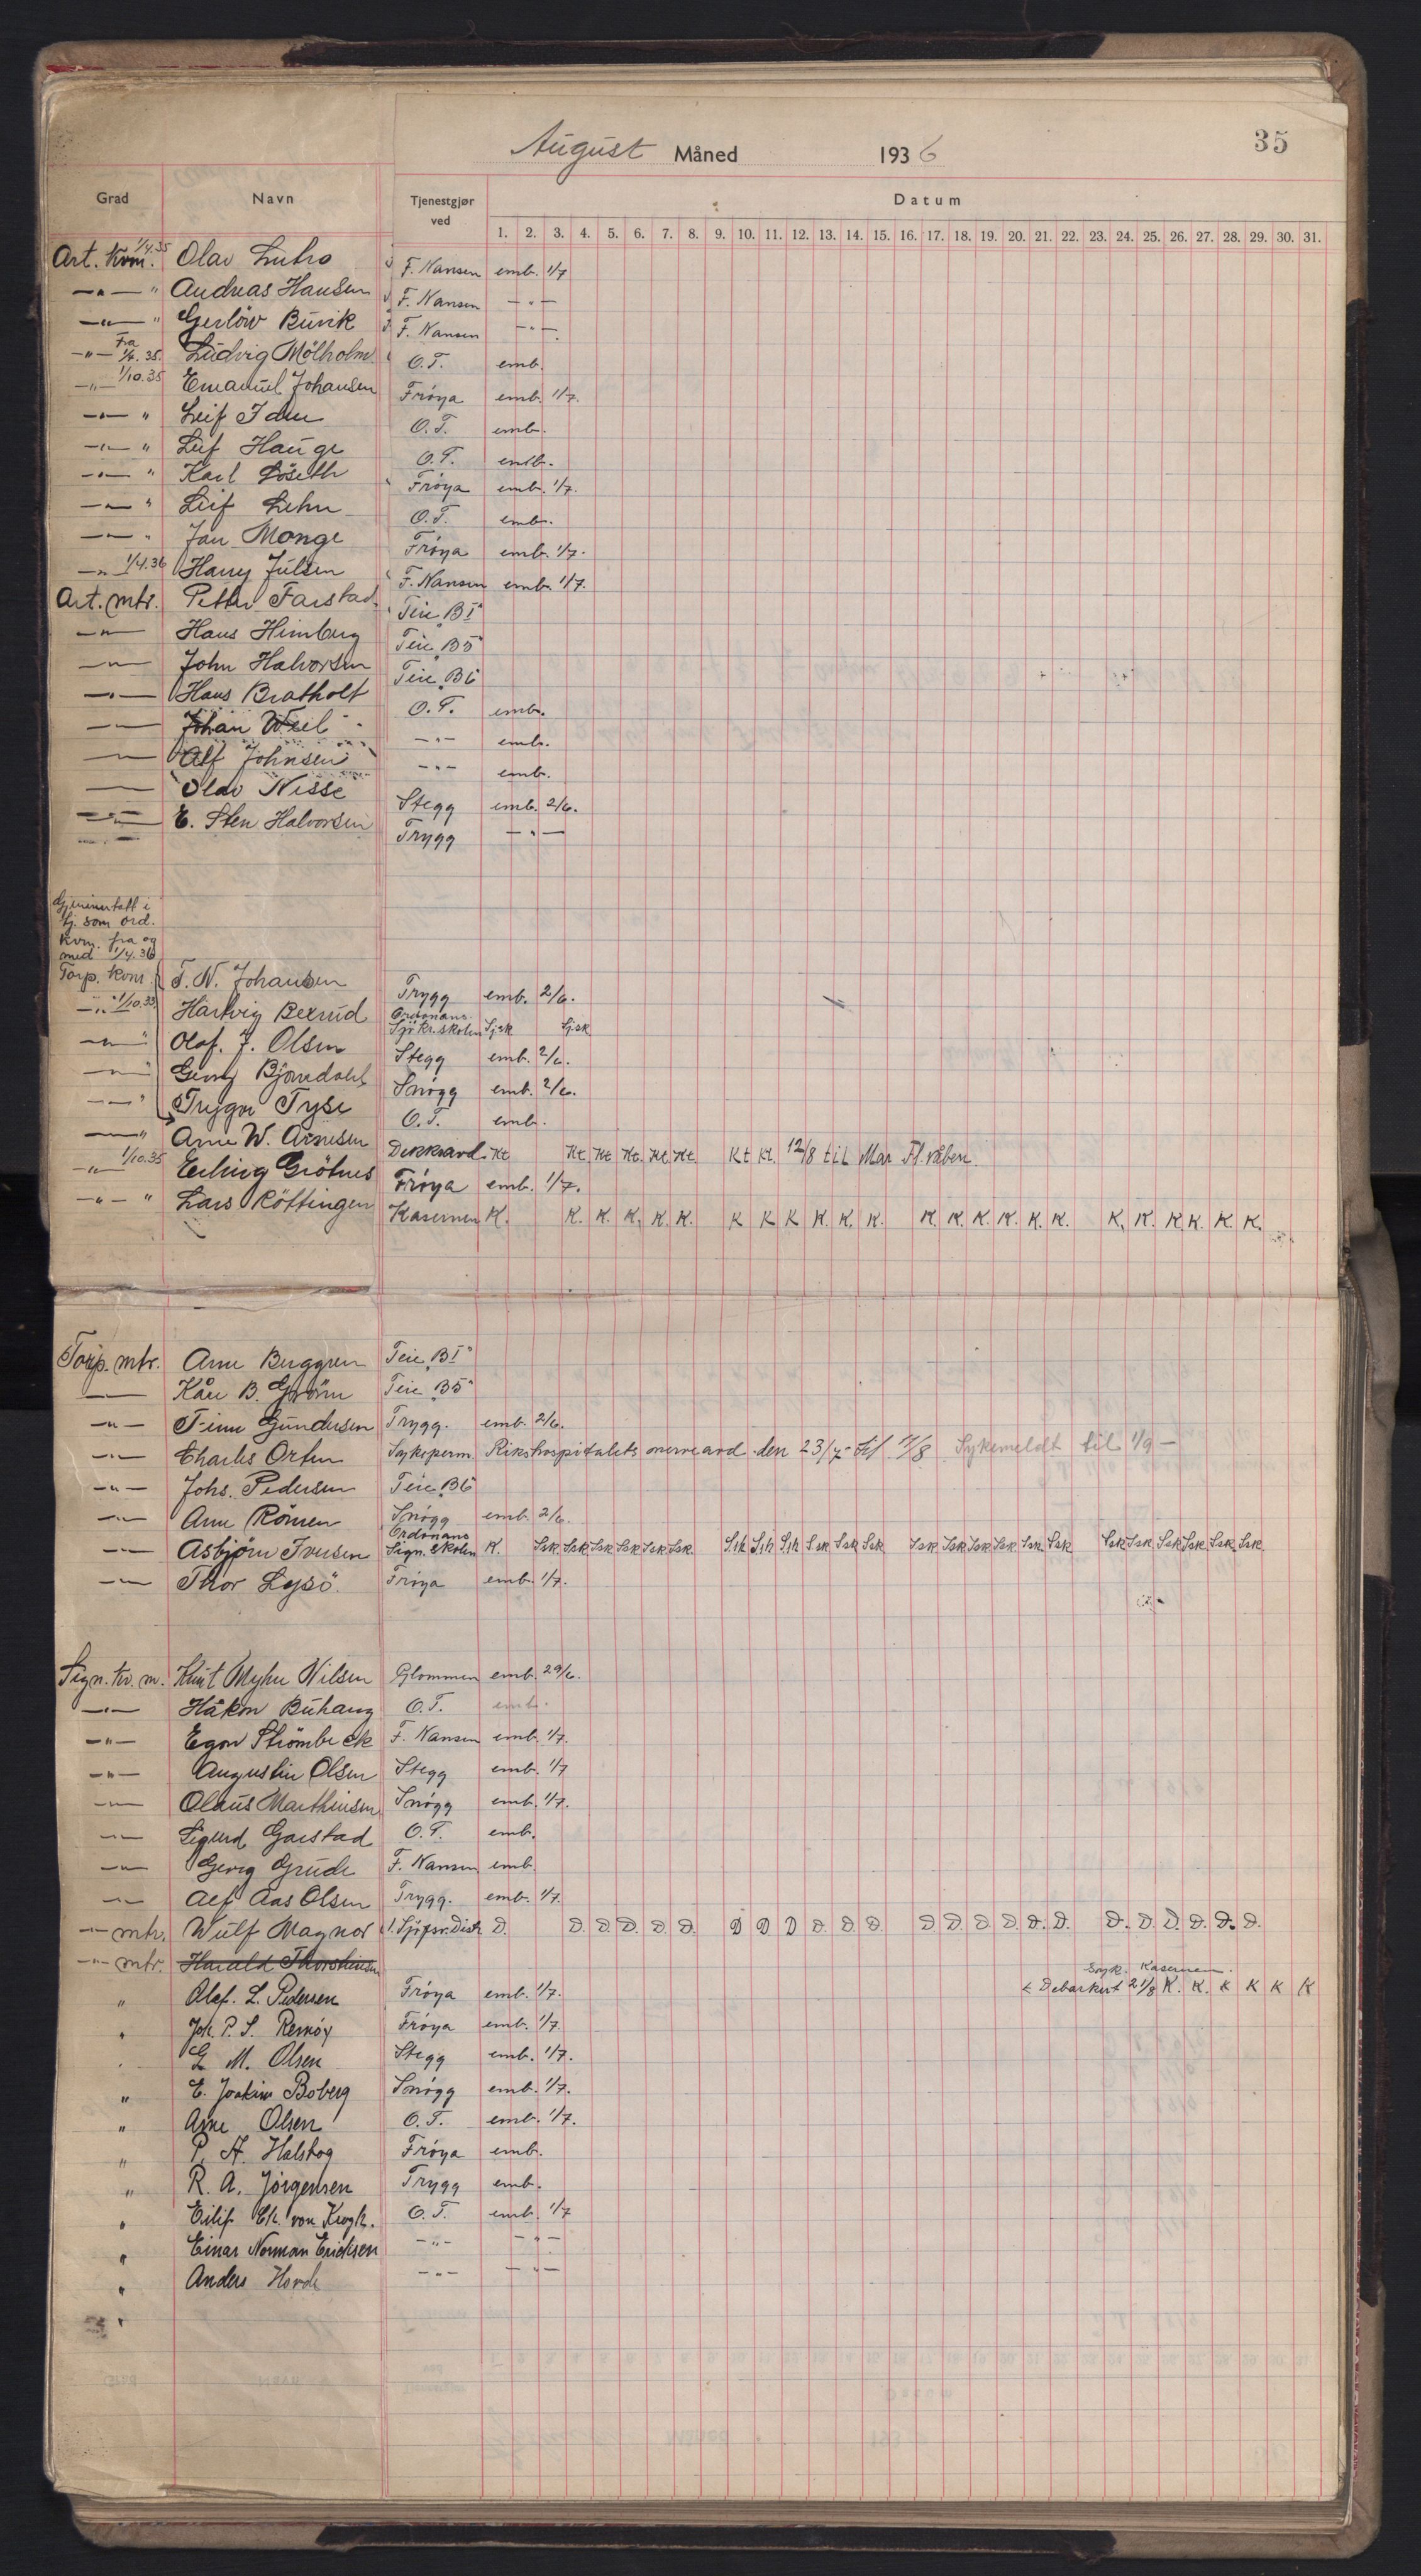 35
August Måned 1936
Grad Navn Tjenestgjør ved Datum
1. 2. 3. 4. 5. 6. 7. 8. 9. 10. 11. 12. 13. 14. 15. 16. 17. 18. 19. 20. 21. 22. 23. 24. 25. 26. 27. 28. 29. 30. 31.
Art. kvm. 1/4.35 Olav F. Nansen emb. 1/7
—"— " Andreas Hansen F. Nansen —"—
—"— " Gerlöw Buvik F. Nansen —"—
—"— Fra 35. Ludvig Mölholm O.T. emb.
—"— 1/10.35 Emanuel Johansen Fröya emb. 1/7.
—"— " Leif Iden O.T. emb.
—"— " Leif Hauge O.T. emb.
—"— " Karl Löseth Fröya emb. 1/7.
—"— " Leif Lehn O.T. emb.
—"— " Jan Monge Fröya emb. 1/7.
—"— 1/4.36 Harry Julsen F. Nansen emb. 1/7.
Art. mtr. Petter Farstad Teie "B1"
—"— Hans Himberg Teie "B5"
—"— John Halvorsen Teie "B6
—"— Hans Bratholt O.T. emb.
—"— Johan Weel —"— emb.
—"— Alf Johnsen —"— emb.
—"— Olav Nisse Stegg emb. 2/6.
—"— E. Sten Halvorsen Trygg —"—
Gjeninntatt i
tj. som ord.
kvm. fra og
med 1/4.36
Torp. kvm. T. N. Johansen Trygg emb. 2/6.
—"— 1/10.35 Hartvig Bexrud Ordonans Sjökr.skolen Sjsk Sjsk
—"— " Olaf. J. Olsen Stegg emb. 2/6.
—"— " Georg Bjørndahl Snögg emb. 2/6.
—"— " Trygve Tyse O.T. emb.
—"— " Arne W. Arnesen Dekksavd. Kt Kt Kt Kt. Kt Kt. Kt Kt. 12/8 til Mar. Fl. våben.
—"— 1/10.35 Erling Grötnes Fröya emb. 1/7.
—"— " Lars Röttingen Kasernen K. K. K. K. K. K. K K K K. K. K. K. K. K. K. K. K. K. K. K. K. K. K.
Torp. mtr. Arne Berggren Teie "B1"
—"— Kåre B. Teie "B5"
—"— Finn Gundersen Trygg. emb. 2/6.
—"— Charles Orten Sykeperm. Rikshospitalets nerveavd. den 23/7 - til 11/8 Sykemeldt til 1/9 —
—"— Johs. Pedersen Teie "B6"
—"— Arne Römen Snögg emb. 2/6.
—"— Asbjørn Iversen Ordonans Sign. skolen K. Ssk. Ssk Ssk Ssk Ssk Ssk. Ssk Ssk Ssk Ssk Ssk Ssk Ssk Ssk Ssk Ssk Ssk Ssk Ssk Ssk Ssk Ssk Ssk. Ssk.
—"— Thor Lysö. Fröya emb. 1/7.
Sign. kv. m. Knut Myhre Nilsen Glommen emb. 29/6.
—"— Håkon Buhaug O.T. emb.
—"— Egon Strömbeck F. Nansen emb. 1/7.
—"— Augustin Olsen Stegg emb. 1/7
—"— Olaus Marthinsen Snögg emb. 1/7.
—"— Sigurd Garstad O.T. emb.
—"— Georg Grude F. Nansen emb.
—"— Alf Aas Olsen Trygg. emb. 1/7.
—"— mtr. Wulf Magnor 1. Sjöfsv. Distr. D. D. D. D. D. D. D D D D. D. D. D D. D. D. D. D. D. D. D. D. D. D.
—"— mtr. Harald Thorstensen
" Olaf. L. Pedersen Fröya emb. 1/7. Syk. Kasernen. Debarkert 21/8 K. K. K K K K
" Joh. P. S. Remöy Fröya emb. 1/7.
" M. Olsen Stegg emb. 1/7.
" E. Joakim Boberg Snögg emb. 1/7.
" Arne Olsen O.T. emb. 1/7.
" P. A. Halskog Fröya emb.
" R. A. Jörgensen Trygg emb.
" Eilif Chr. von Krogh. O.T. emb. 1/7
" Einar Norman Ericksen —"— —"—
" Anders Horde —"— —"—
"